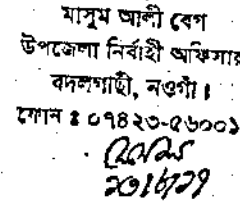 মাসুম আলী বেগ
উপজেলা নির্বাহী অফিসার
বদলগাছী, নওগাঁ।
ফোন : ০৭৪২৩-৫৬০০১